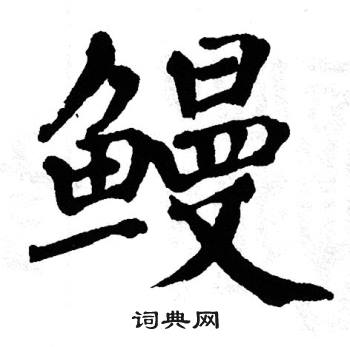 鳗
词典网